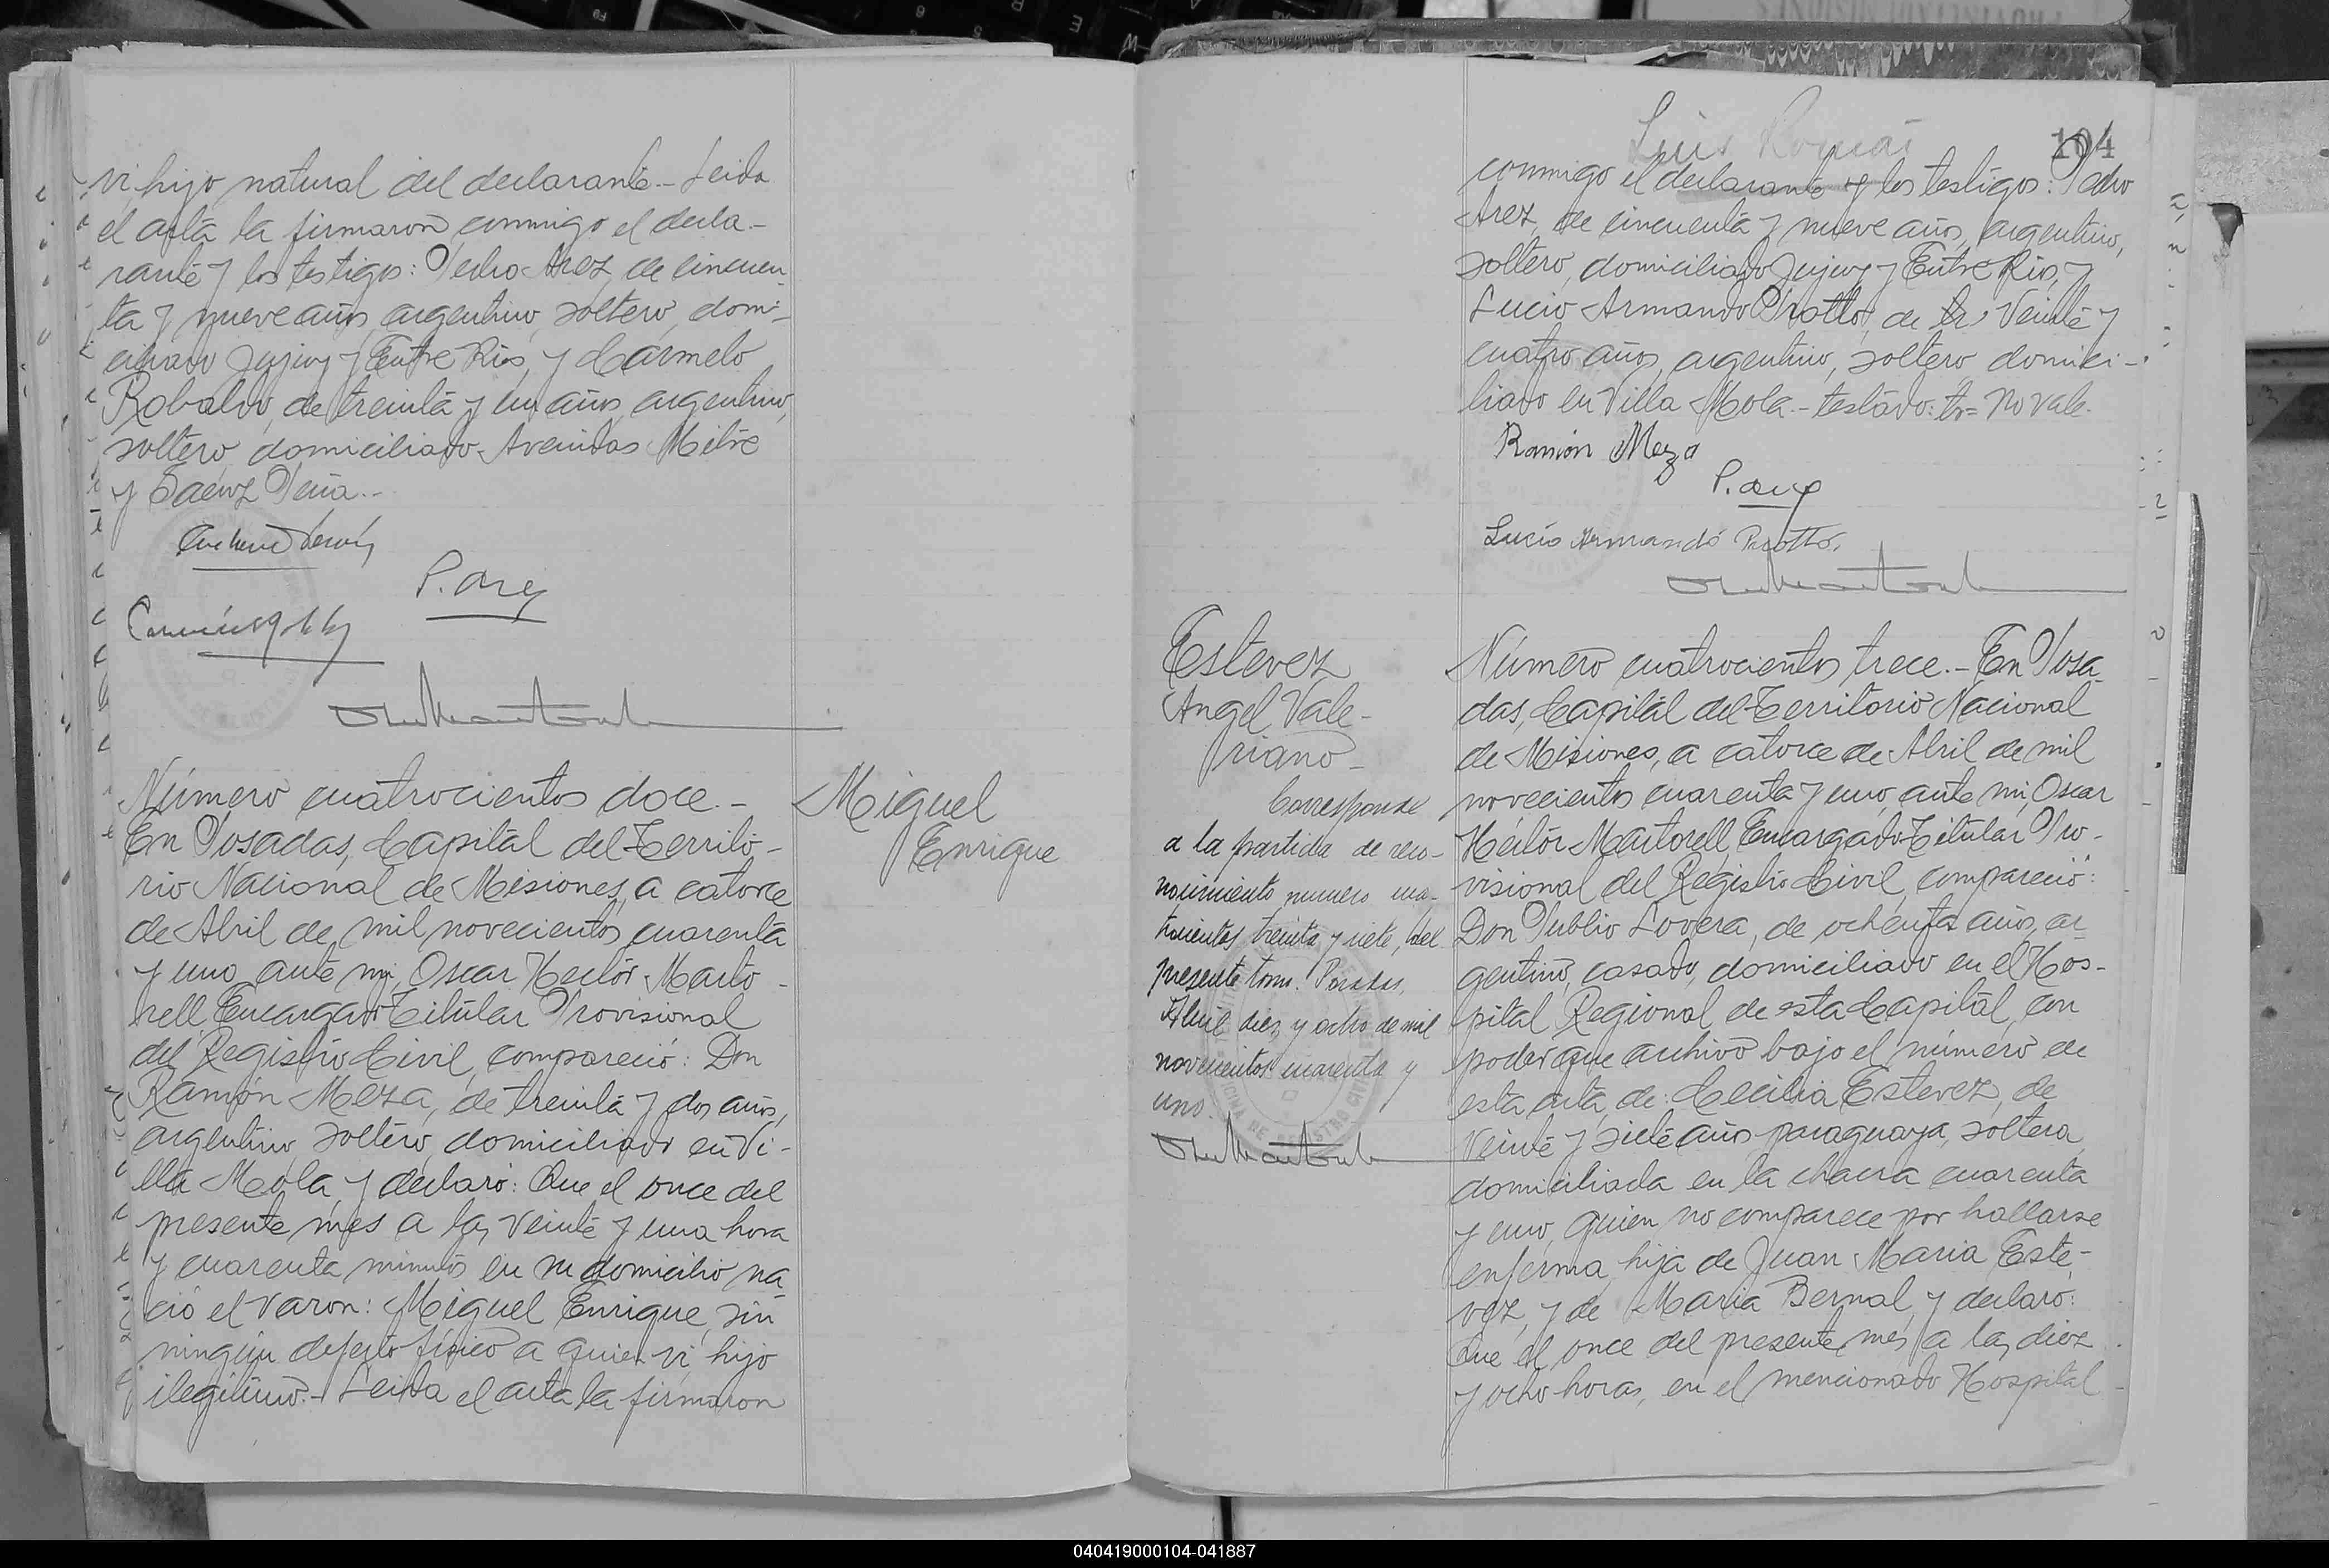 vi, hijo natural del declarante.- Leida
el acta la firmaron conmigo el decla-
rante y los testigos: Pedro Arez, de cincuen-
ta y nueve años, argentino, soltero, domi-
ciliado Jujuy y Entre Rios, y Carmelo
Robaldo, de treinta y un años, argentino,
soltero, domiciliado Avenidas Mitre
y Saenz Peña.-
P. Arez
Número cuatrocientos doce.-
En Posadas, Capital del Territo-
rio Nacional de Misiones, a catorce
de Abril de mil novecientos cuarenta
y uno, ante mi, Oscar Hector Marto-
rell, Encargado Titular Provisional
del Registro Civil, compareció: Don
Ramón Meza, de treinta y dos años,
argentino, soltero, domiciliado en Vi-
lla Mola, y declaró: Que el once del
presente mes a las veinte y una hora
y cuarenta minutos en su domicilio na-
ció el varon: Miguel Enrique, sin
ningún defecto físico a quien vi, hijo
ilegitimo.- Leida el acta la firmaron
Miguel
Enrique
Luis Roman
104
conmigo el declarante y los testigos: Pedro
Arez, de cincuenta y nueve años, argentino,
soltero, domiciliado Jujuy y Entre Rios, y
Lucio Armando Pratto, de tr veinte y
cuatro años, argentino, soltero, domici-
liado en Villa Mola.- testado: tr= No vale.
Ramón Meza
P. Arez
Lucio Armando Pratto.
Estevez
Angel Vale-
riano-
Corresponde
a la partida de reco-
nocimiento numero cua-
trocientos treinta y siete, del
presente tomo. Posadas,
Abril diez y ocho de mil
novecientos cuarenta y
uno.
Número cuatrocientos trece.- En Posa-
das, Capital del Territorio Nacional
de Misiones, a catorce de Abril de mil
novecientos cuarenta y uno, ante mi, Oscar
Hector Martorell, Encargado Titular Pro-
visional del Registro Civil, compareció:
Don Publio Lovera, de ochenta años, ar-
gentino, casado, domiciliado en el Hos-
pital Regional de esta Capital, con
poder que archivo bajo el número de
esta acta, de: Cecilia Estevez, de
veinte y siete años paraguaya, soltera,
domiciliada en la chacra cuarenta
y uno, quien no comparece por hallarse
enferma, hija de Juan Maria Este-
vez, y de Maria Bernal, y declaro:
Que el once del presente mes a las diez
y ocho horas, en el mencionado Hospital
040419000104-041887